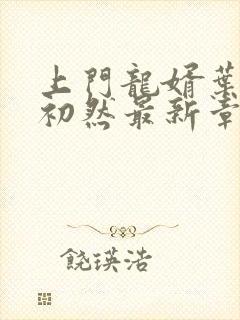 上門龍婿葉
初然最新章
饒瑛浩